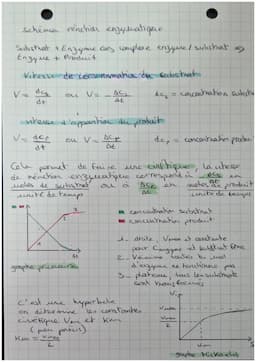 schéma réaction enzymatique
Substrat + Enzyme ⇔ complexe enzyme/substrat ⇔
Enzyme + Produit
Vitesse de consommation du substrat
V = - dcs/dt ou V = - Δcs/Δt dcs = concentration substrat
vitesse d'apparition du produit
V = dcp/dt ou V = Δcp/Δt dcp = concentration produit
Cela permet de faire une cinétique, la vitesse
de réaction enzymatique correspond à Δcs/Δt en
moles de substrat ou à Δcp/Δt en moles de produit
unité de temps unité de temps
concentration substrat
concentration produit
1. droite, Vmax et constante
pour l'enzyme et
2. toutes
d'enzyme ne fonctionnent pas
3. plateau, tous les substrats
sont transformés
graphe
C'est une hyperbole
on détermine les constantes
cinétique Vm et Km
(peu précis)
Km = Vmax/2
Vmax
Vmax/2
graphe Michaelis